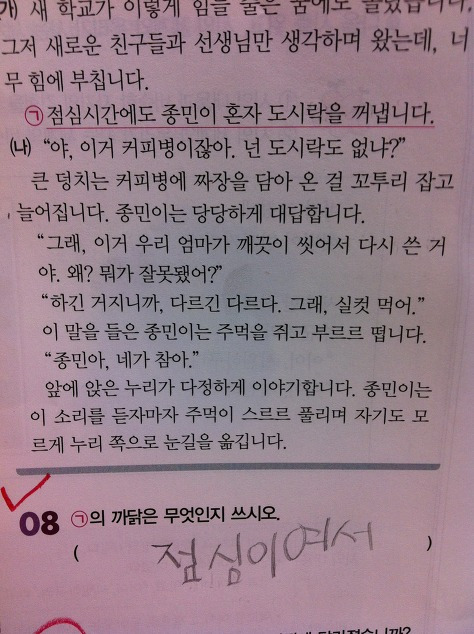 ㈎ 새 학교가 이렇게 힘들 줄은 꿈에도 몰랐습니다.
그저 새로운 친구들과 선생님만 생각하며 왔는데, 너
무 힘에 부칩니다.
㉠점심시간에도 종민이 혼자 도시락을 꺼냅니다.
㈏ “야, 이거 커피병이잖아. 넌 도시락도 없냐?”
큰 덩치는 커피병에 짜장을 담아 온 걸 꼬투리 잡고
늘어집니다. 종민이는 당당하게 대답합니다.
“그래, 이거 우리 엄마가 깨끗이 씻어서 다시 쓴 거
야. 왜? 뭐가 잘못됐어?”
“하긴 거지니까, 다르긴 다르다. 그래, 실컷 먹어.”
이 말을 들은 종민이는 주먹을 쥐고 부르르 떱니다.
“종민아, 네가 참아.”
앞에 앉은 누리가 다정하게 이야기합니다. 종민이는
이 소리를 듣자마자 주먹이 스르르 풀리며 자기도 모
르게 누리 쪽으로 눈길을 옮깁니다.
08 ㉠의 까닭은 무엇인지 쓰시오.
( 점심이여서 )